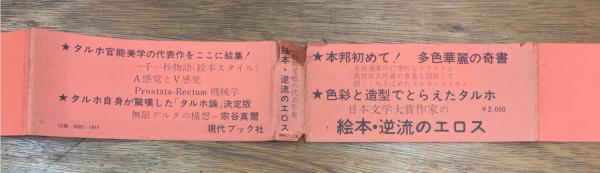 ★タルホ官能美学の代表作をここに結集!
一千一秒物語(絵本スタイル)
A感覚とV感覚
Prostata-Rectum 機械学
★タルホ自身が驚嘆した「タルホ論」決定版
無限デルタの構想―宗谷真爾
現代ブック社
絵本・逆流のエロス
★本邦初めて! 多色華麗の奇書
★色彩と造型でとらえたタルホ
日本文学大賞作家の
¥2,000
絵本・逆流のエロス